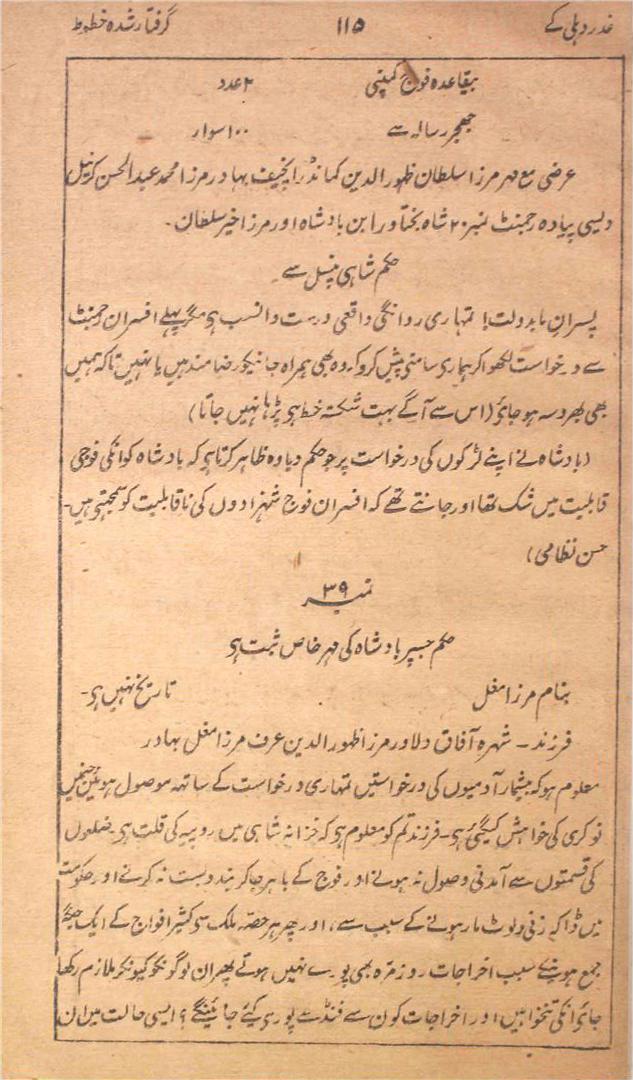 غدر دہلی کے ۱۱۵ گرفتار شدہ خطوط
بیقاعدہ فوج کمپنی ۲ عدد
جھجر رسالہ سے ۱۰۰ سوار
عرضی مع مہر مرزا سلطان ظہور الدین کمانڈر انچیف بہادر مرزا محمد عبد الحسن کرنیل
دیسی پیادہ رجمنٹ نمبر ۲۰ شاہ بختاور ابن بادشاہ اور مرزا خیر سلطان۔
حکم شاہی پنسل سے
پسرانِ مابدولت! تمہاری روانگی واقعی درست و انسب ہی مگر پہلے افسران رجمنٹ
سے درخواست لکھوا کر ہماری سامنی پیش کرو کہ وہ بھی ہمراہ جانیکو رضامند ہیں یا نہیں تاکہ ہمیں
بھی بھروسہ ہو جائی (اس سے آگے بہت شکستہ خط ہی پڑہا نہیں جاتا)
(بادشاہ نے اپنے لڑکوں کی درخواست پر جو حکم دیا وہ ظاہر کرتا ہی کہ بادشاہ کو انکی فوجی
قابلیت میں شک تھا اور جانتے تھے کہ افسران فوج شہزادوں کی ناقابلیت کو سمجہتی ہیں۔
حسن نظامی)
نمبر ۳۹
حکم جسپر بادشاہ کی مہر خاص ثبت ہی
بنام مرزا مغل تاریخ نہیں ہی۔
فرزند۔ شہرہ آفاق دلاور مرزا ظہور الدین عرف مرزا مغل بہادر
معلوم ہو کہ بیشمار آدمیوں کی درخواستیں تمہاری درخواست کے ساتھ موصول ہوئیں جنمیں
نوکری کی خواہش کیگئی ہی۔ فرزند تم کو معلوم ہی کہ خزانہ شاہی میں روپیہ کی قلت ہی۔ ضلعوں
کی قسمتوں سے آمدنی وصول نہ ہونے اور فوج کے باہر جا کر بندوبست نہ کرنے اور حکومت
میں ڈاکہ زنی ولوٹ مار ہونے کے سبب سے، اور پھر ہر حصہ ملک سی کثیر افواج کے ایک جگہ
جمع ہونیکے سبب اخراجات روزمرہ بھی پورے نہیں ہوتے پھر ان لوگونکو کیونکر ملازم رکھا
جائی انکی تنخواہیں اور اخراجات کون سے فنڈسے پوری کیے جائینگے؟ ایسی حالت میں ان